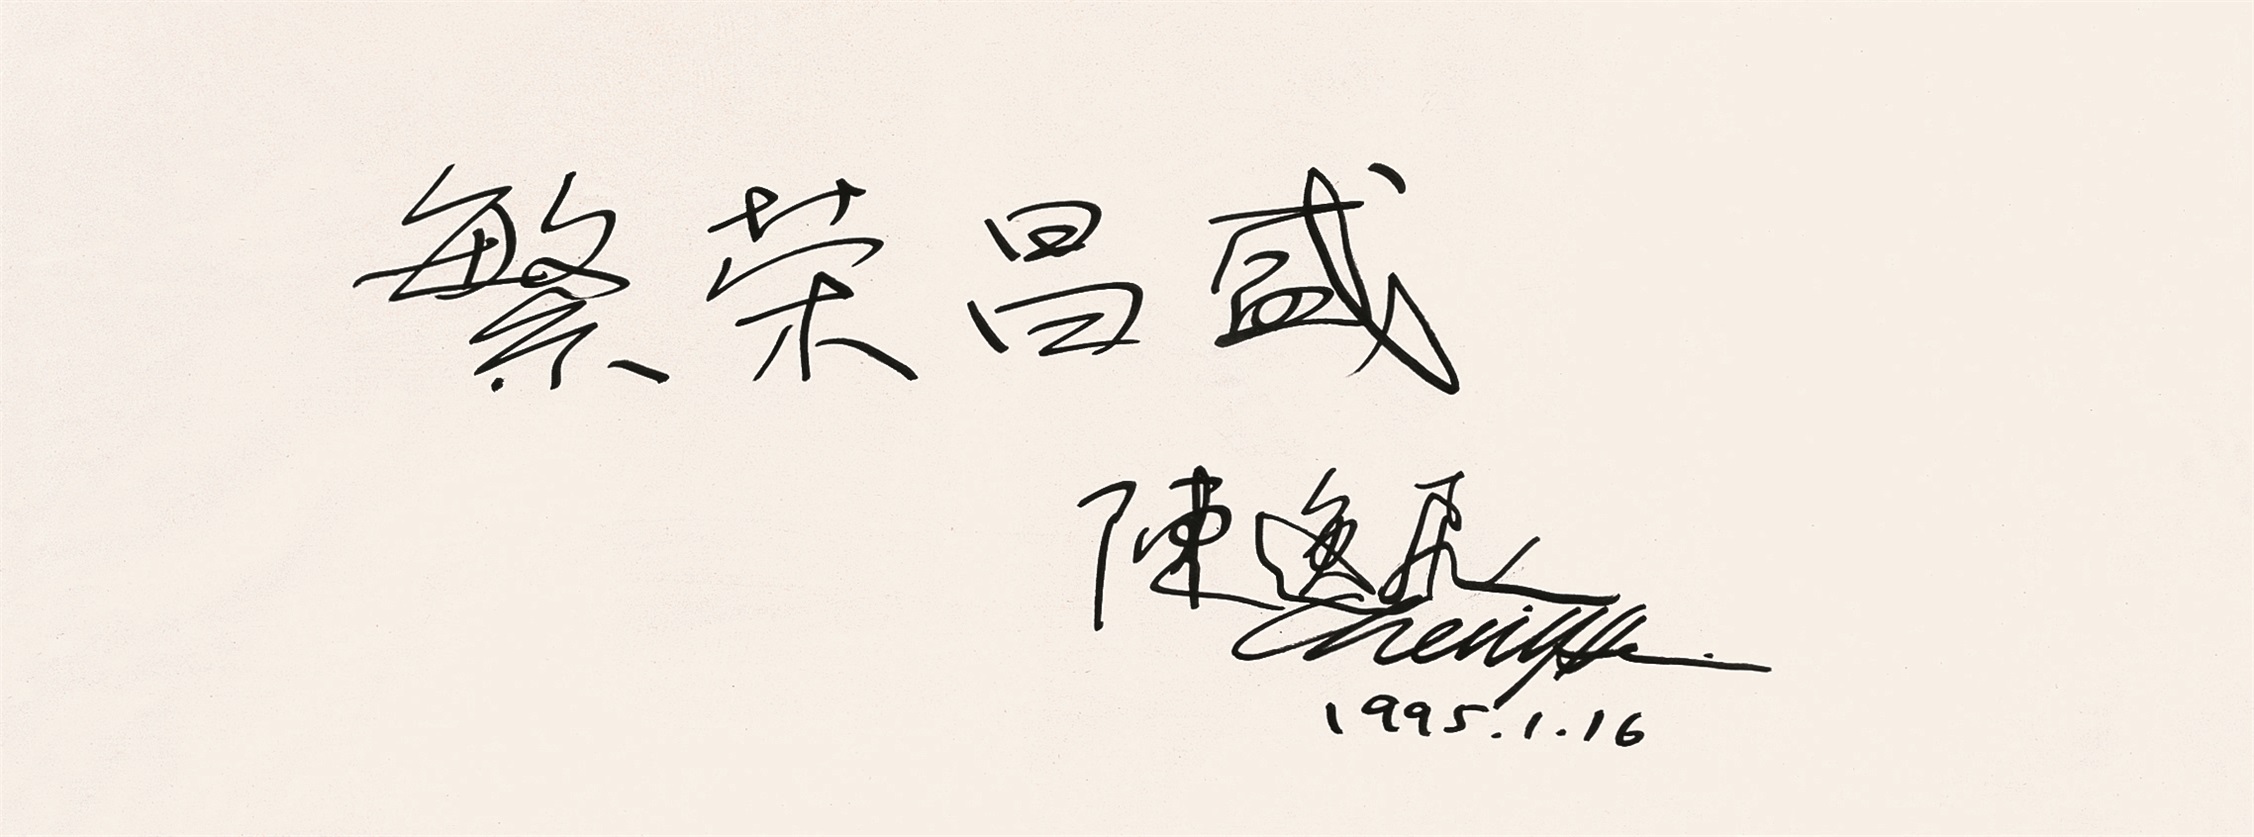 繁荣昌盛
陳逸飛
1995.1.16